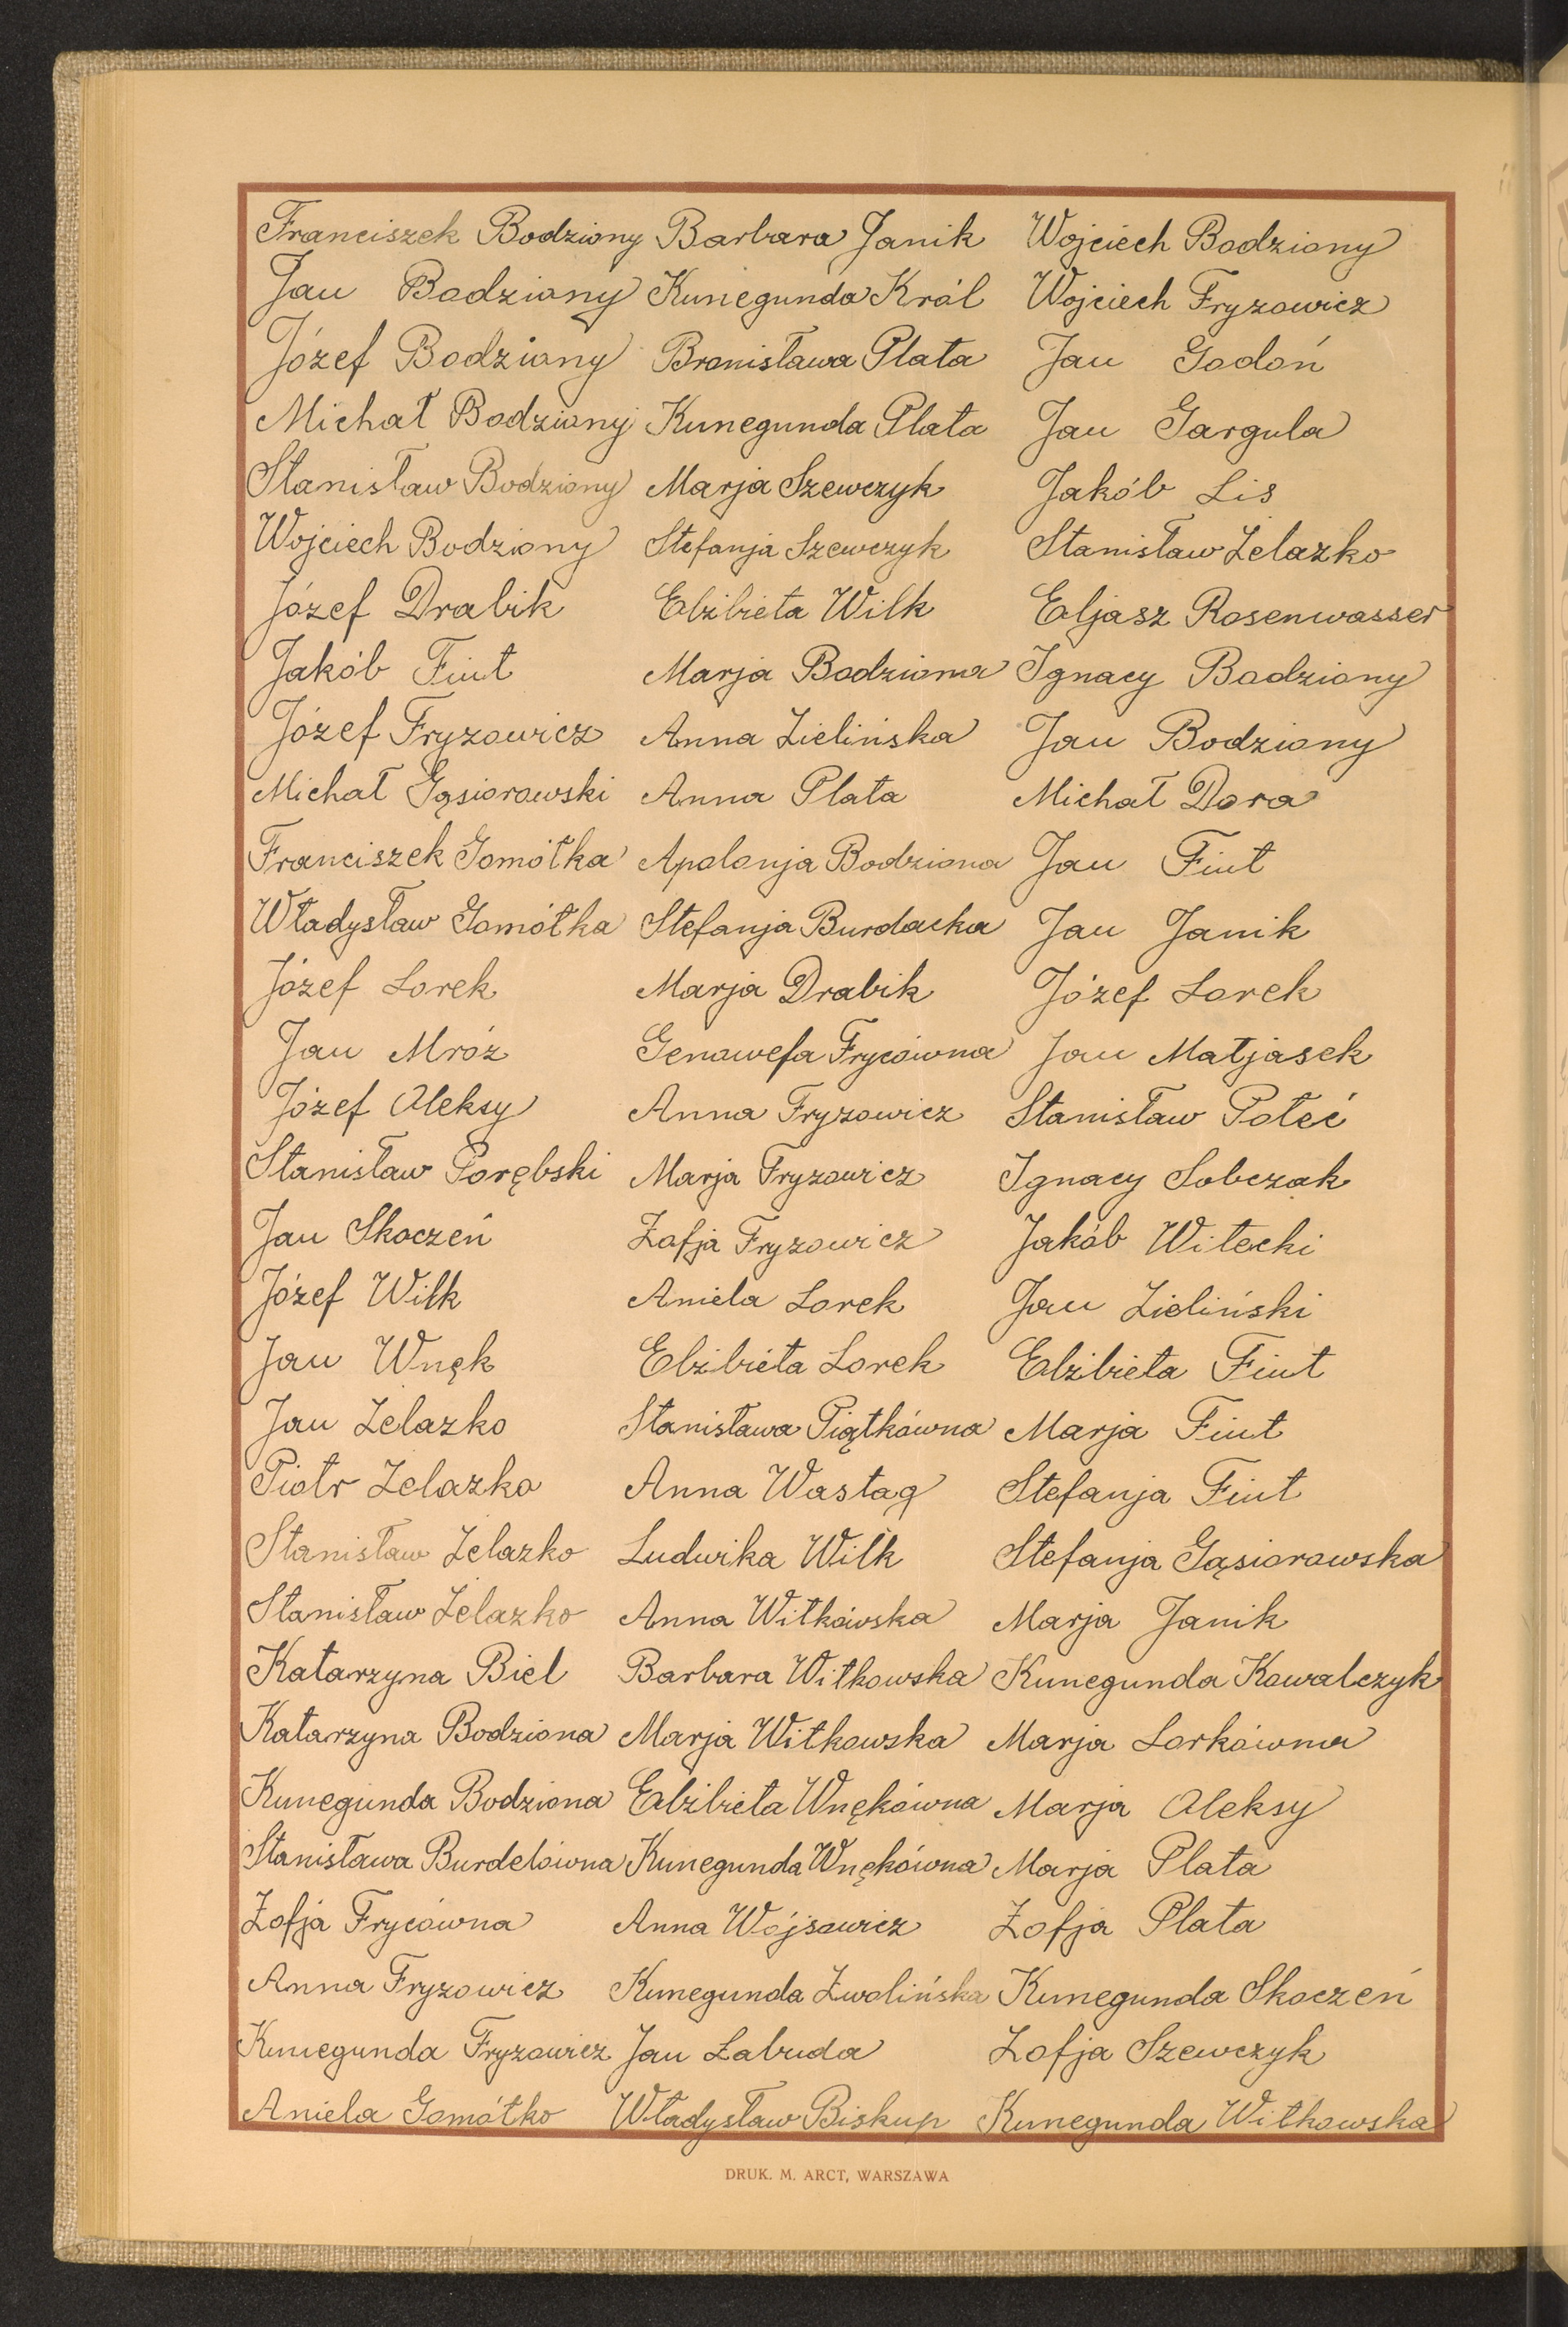 Franciszek Bodziony Barbara Janik Wojciech Bodziony
Jan Bodziony Kunegunda Król Wojciech Fryzowicz
Józef Bodziony Bronisława Plata Jan Godoń
Michał Bodziony Kunegunda Plata Jan Gargula
Stanisław Bodziony Marja Szewczyk Jakób Lis
Wojciech Bodziony Stefanja Szewczyk Stanisław Żelazko
Józef Drabik Elżbieta Wilk Eljasz Rosenwasser
Jakób Fiut Marja Bodziona Ignacy Bodziony
Józef Fryzowicz Anna Zielińska Jan Bodziony
Michał Gąsiorowski Anna Plata Michał Dora
Franciszek Gomółka Apolonja Bodziona Jan Fiut
Władysław Gomółka Stefanja Burdacka Jan Janik
Józef Lorek Marja Drabik Józef Lorek
Jan Mróz Genowefa Frycówna Jan Matjasek
Józef Oleksy Anna Fryzowicz Stanisław Połeć
Stanisław Porębski Marja Fryzowicz Ignacy Sobczak
Jan Skoczeń Zofja Fryzowicz Jakób Witecki
Józef Wilk Aniela Lorek Jan Zieliński
Jan Wnęk Elżbieta Lorek Elżbieta Fiut
Jan Żelazko Stanisława Piątkówna Marja Fiut
Piotr Żelazko Anna Wastag Stefanja Fiut
Stanisław Żelazko Ludwika Wilk Stefanja Gąsiorowska
Stanisław Żelazko Anna Witkowska Marja Janik
Katarzyna Biel Barbara Witkowska Kunegunda Kowalczyk
Katarzyna Bodziona Marja Witkowska Marja Lorkówna
Kunegunda Bodziona Elżbieta Wnękówna Marja Oleksy
Stanisława Burdelówna Kunegunda Wnękówna Marja Plata
Zofja Frycówna Anna Wójsowicz Zofja Plata
Anna Fryzowicz Kunegunda Zwolińska Kunegunda Skoczeń
Kunegunda Fryzowicz Jan Łabuda Zofja Szewczyk
Aniela Gomółko Władysław Biskup Kunegunda Witkowska
DRUK. M. ARCT, WARSZAWA